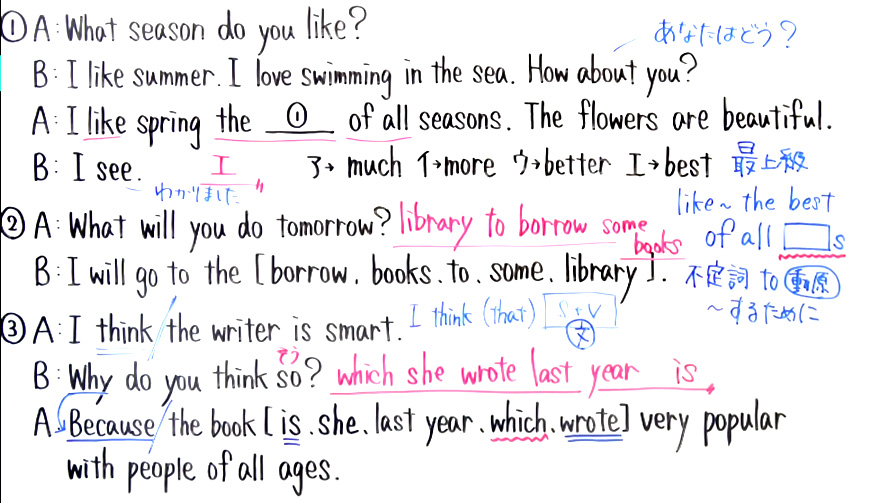 ① A: What season do you like?
あなたはどう？
B: I like summer. I love swimming in the sea. How about you?
A: I like spring the ① of all seasons. The flowers are beautiful.
B: I see. エ ア→ much イ→more ウ→better エ→best 最上級
わかりました
like~ the best
② A: What will you do tomorrow? library to borrow some books
of all □s
B: I will go to the [borrow. books. to. some. library].
不定詞 to 動原
~するために
③ A: I think the writer is smart. I think (that) S+V
文
そう
B: Why do you think so? which she wrote last year is
A: Because the book [is. she. last year. which. wrote] very popular
with people of all ages.